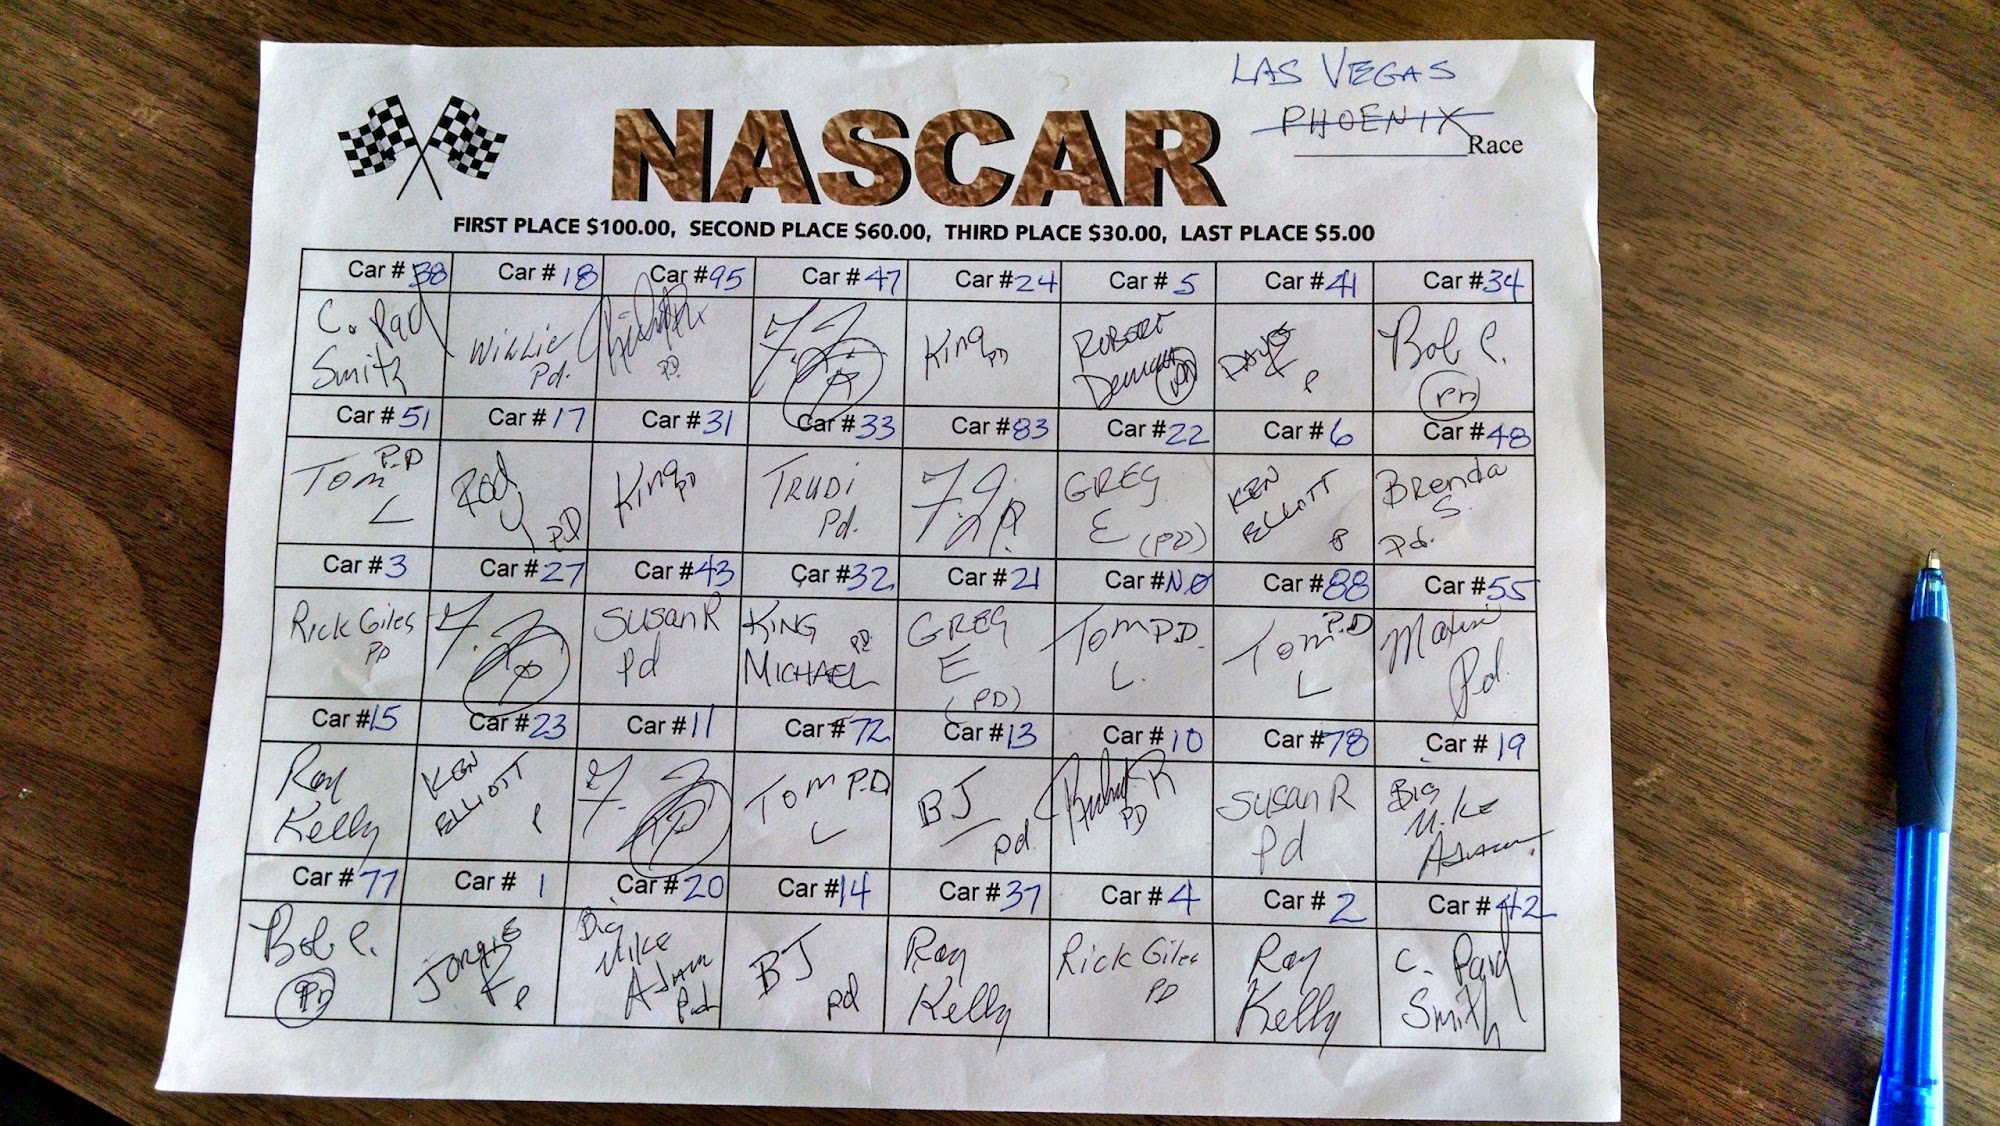 LAS VEGAS
PHOENIX
NASCAR
Race
FIRST PLACE $100.00, SECOND PLACE $60.00, THIRD PLACE $30.00, LAST PLACE $5.00
Car # 38 Car # 18 Car #95 Car #47 Car #24 Car # 5 Car # 41 Car #34
C. Paul Smith
Willie Pd.
PD
King PD
Robert PD
Dave E P
Bob C. PD
Car # 51 Car # 17 Car # 31 Car #33 Car #83 Car #22 Car # 6 Car #48
Tom P.D L
Rod Y PD
King PD
Trudi Pd.
GREG E (PD)
KEN ELLIOTT P
Brenda S. Pd.
Car #3 Car #27 Car #43 Car #32 Car #21 Car #NO Car #88 Car #55
Rick Giles PD
Susan R Pd
KING MICHAEL PD
GREG E (PD)
Tom P.D. L.
Tom P.D L
Pd.
Car #15 Car #23 Car #11 Car #72 Car #13 Car #10 Car #78 Car # 19
Ray Kelly
KEN ELLIOTT P
Tom P.D L
BJ pd.
PD
Susan R Pd
Big Mike
Car # 77 Car # 1 Car #20 Car #14 Car #37 Car # 4 Car # 2 Car #42
Bob C. PD
P
Big Mike Pd
BJ pd
Ray Kelly
Rick Giles PD
Ray Kelly
C. Paul Smith